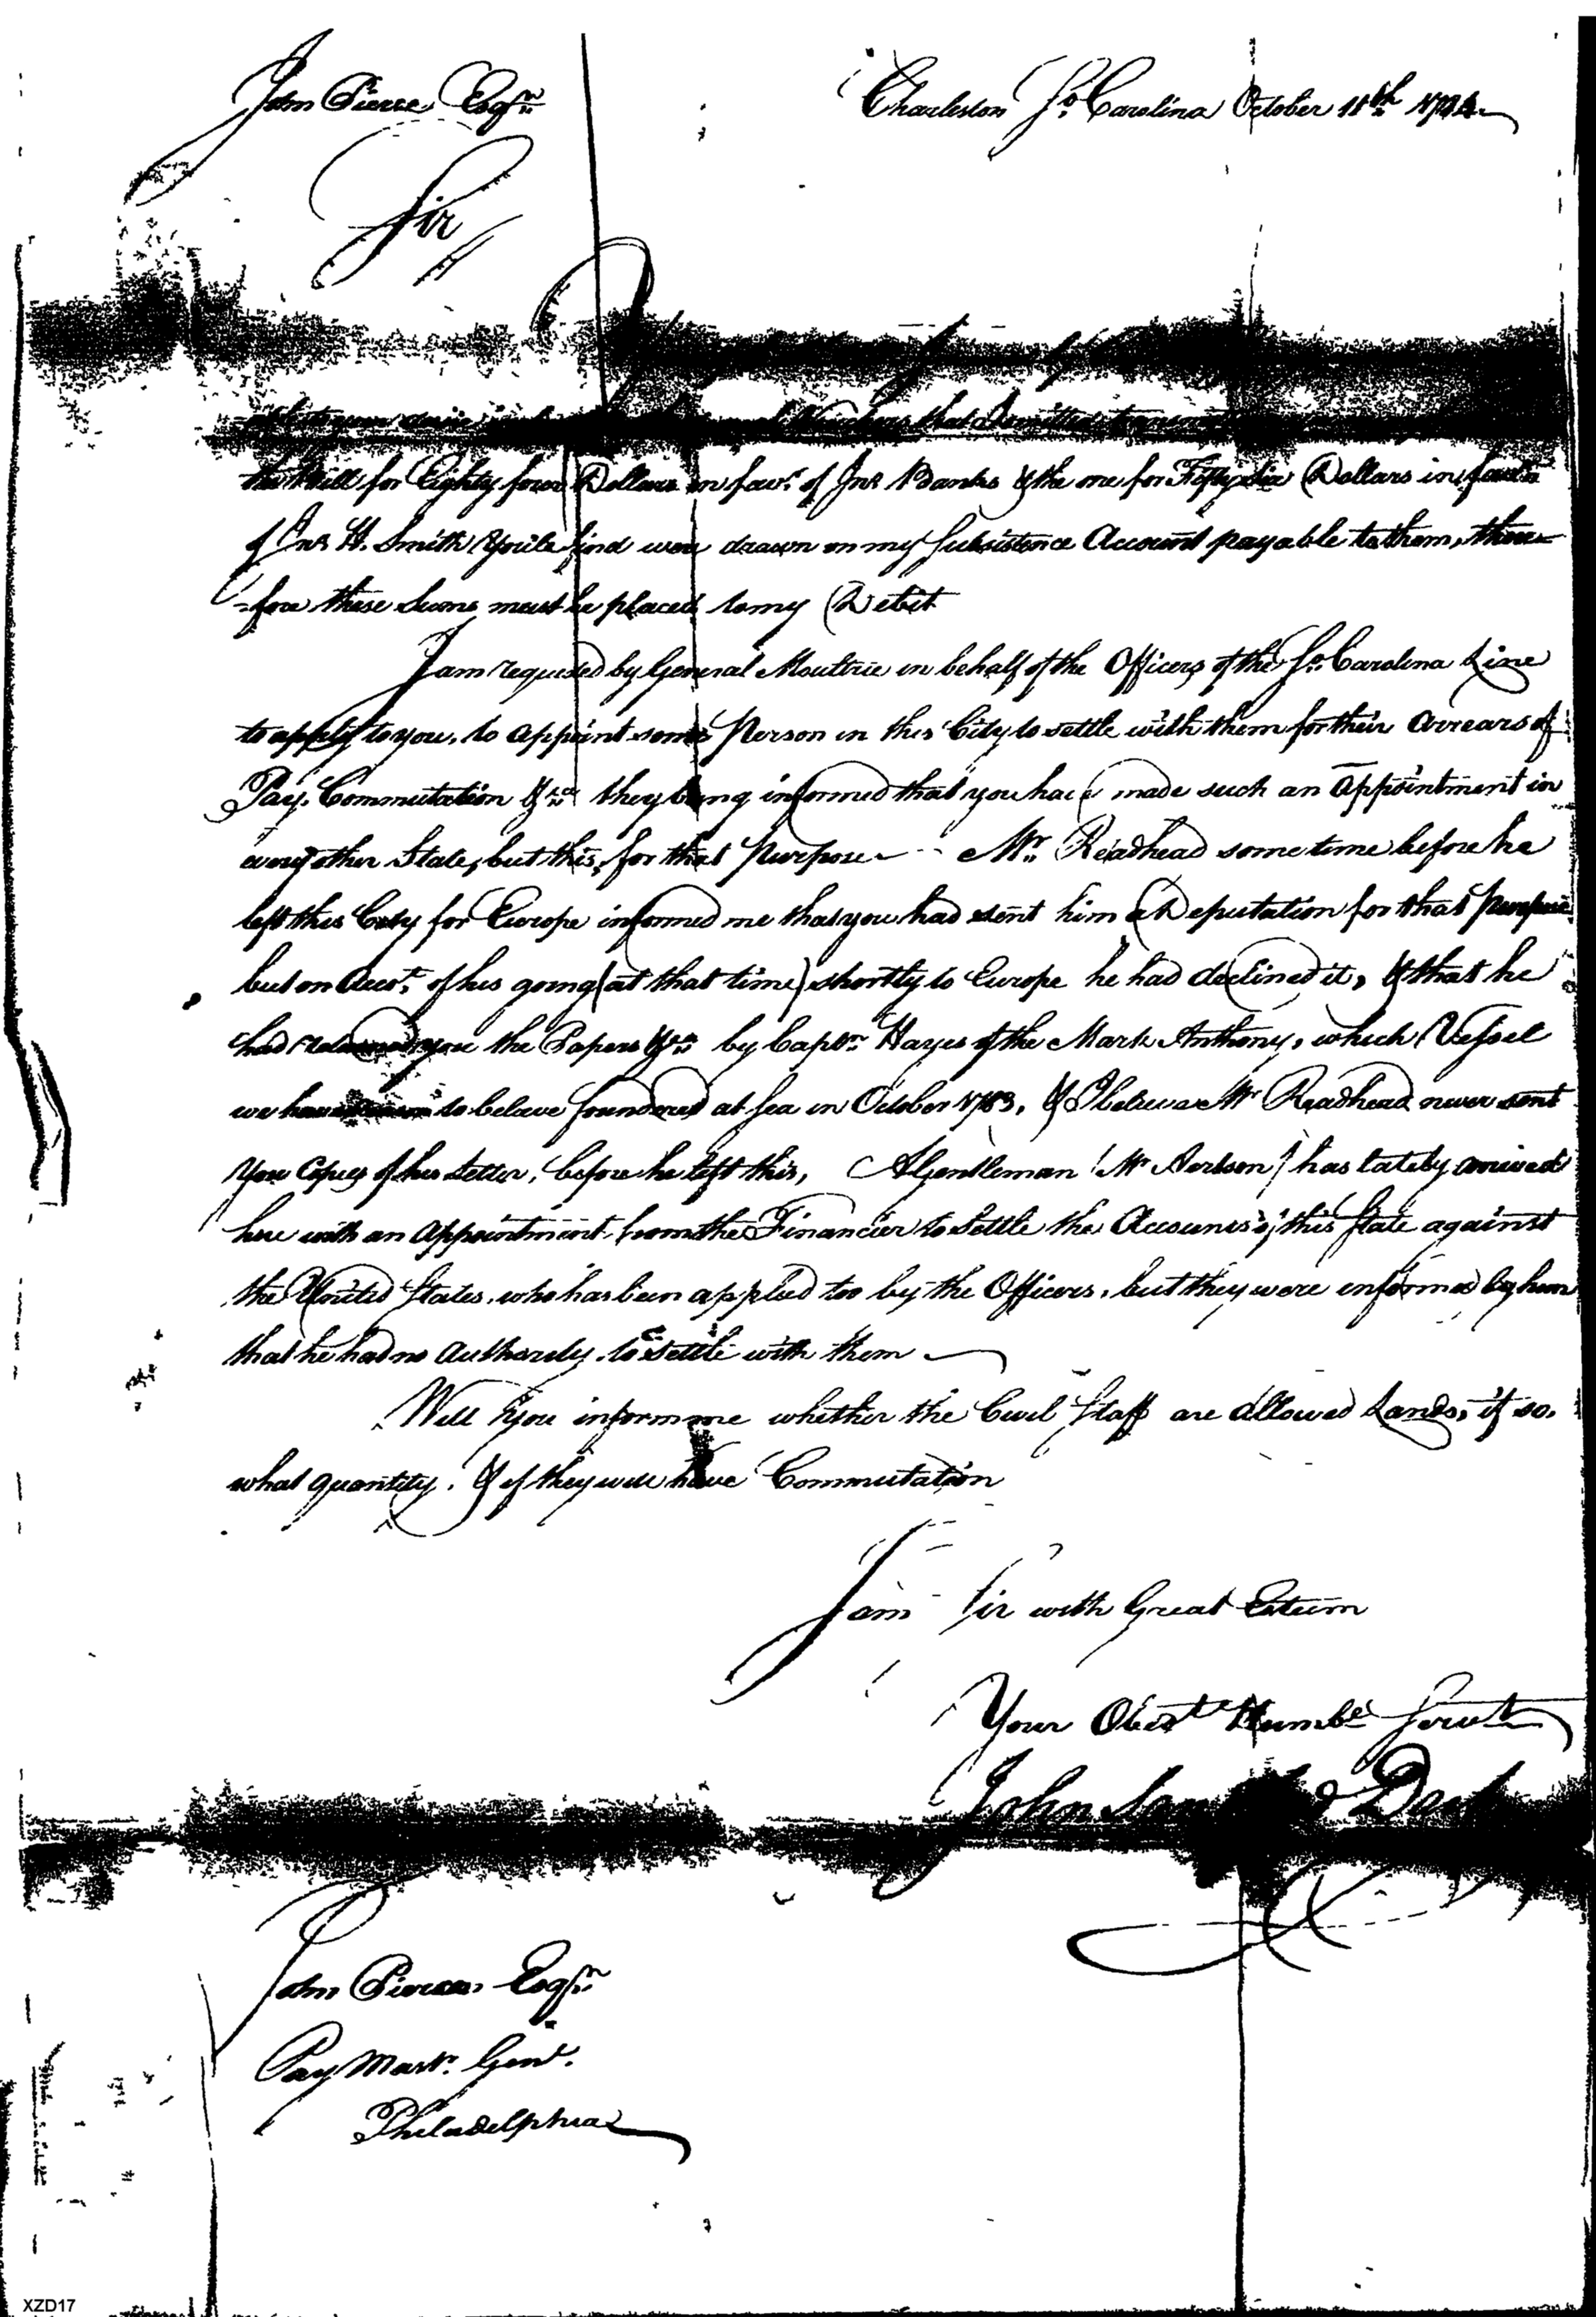 John Pierce Esqr.
Charleston So. Carolina October 18th 1784
Sir
Vouchers that
the Bill for Eighty four Dollars in favr. of Jno. Banks & the one for Fifty six Dollars in favr.
of Jno. H. Smith You'le find were drawn on my Subsistence Account payable to them, there=
=fore these Sums must be placed to my Debit
I am requested by General Moultrie in behalf of the Officers of the So. Carolina Line
to apply to you, to appoint some Person in this City to settle with them for their Arrears of
Pay, Commutation &ca they being informed that you have made such an Appointment in
every other State, but this, for that Purpose — Mr. Readhead some time before he
left this City for Europe informed me that you had sent him a Deputation for that Purpose
but on Accot. of his going (at that time) shortly to Europe he had declined it, & that he
had returned you the Papers &ca by Captn. Hayes of the Mark Anthony, which Vessel
we have to beleive foundered at Sea in October 1783, & I believe Mr Readhead never sent
You Copies of his Letter, before he left this, A Gentleman (Mr has lately arrived
here with an Appointment from the Financier to Settle the Accounts of this State against
the United States, who has been applied too by the Officers, but they were informed by him
that he had no Authority to settle with them —
Will You inform me whether the Civil Staff are allowed Lands, if so,
what quantity, & if they will have Commutation
I am Sir with Great Esteem
Your Obedt Humble Servt
John Sand
John Pierce Esqr.
Pay Mastr. Genl.
Philadelphia
XZD17